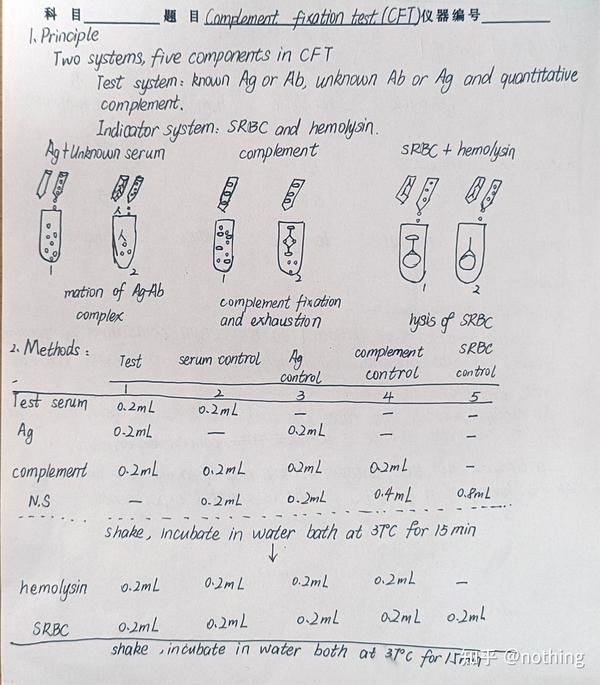 科 目 题 目 Complement fixation test (CFT) 仪器编号
1. Principle
Two systems, five components in CFT
Test system: known Ag or Ab, unknown Ab or Ag and quantitative
complement.
Indicator system: SRBC and hemolysin.
Ag+Unknown serum complement SRBC + hemolysin
1 2 1 2 1 2
mation of Ag-Ab complement fixation lysis of SRBC
complex and exhaustion
2. Methods:
Test serum control Ag control complement control SRBC control
1 2 3 4 5
Test serum 0.2mL 0.2mL — — —
Ag 0.2mL — 0.2mL — —
complement 0.2mL 0.2mL 0.2mL 0.2mL —
N.S — 0.2mL 0.2mL 0.4mL 0.8mL
shake, incubate in water bath at 37°C for 15 min
↓
hemolysin 0.2mL 0.2mL 0.2mL 0.2mL —
SRBC 0.2mL 0.2mL 0.2mL 0.2mL 0.2mL
shake, incubate in water both at 37°C for 15
知乎 @nothing